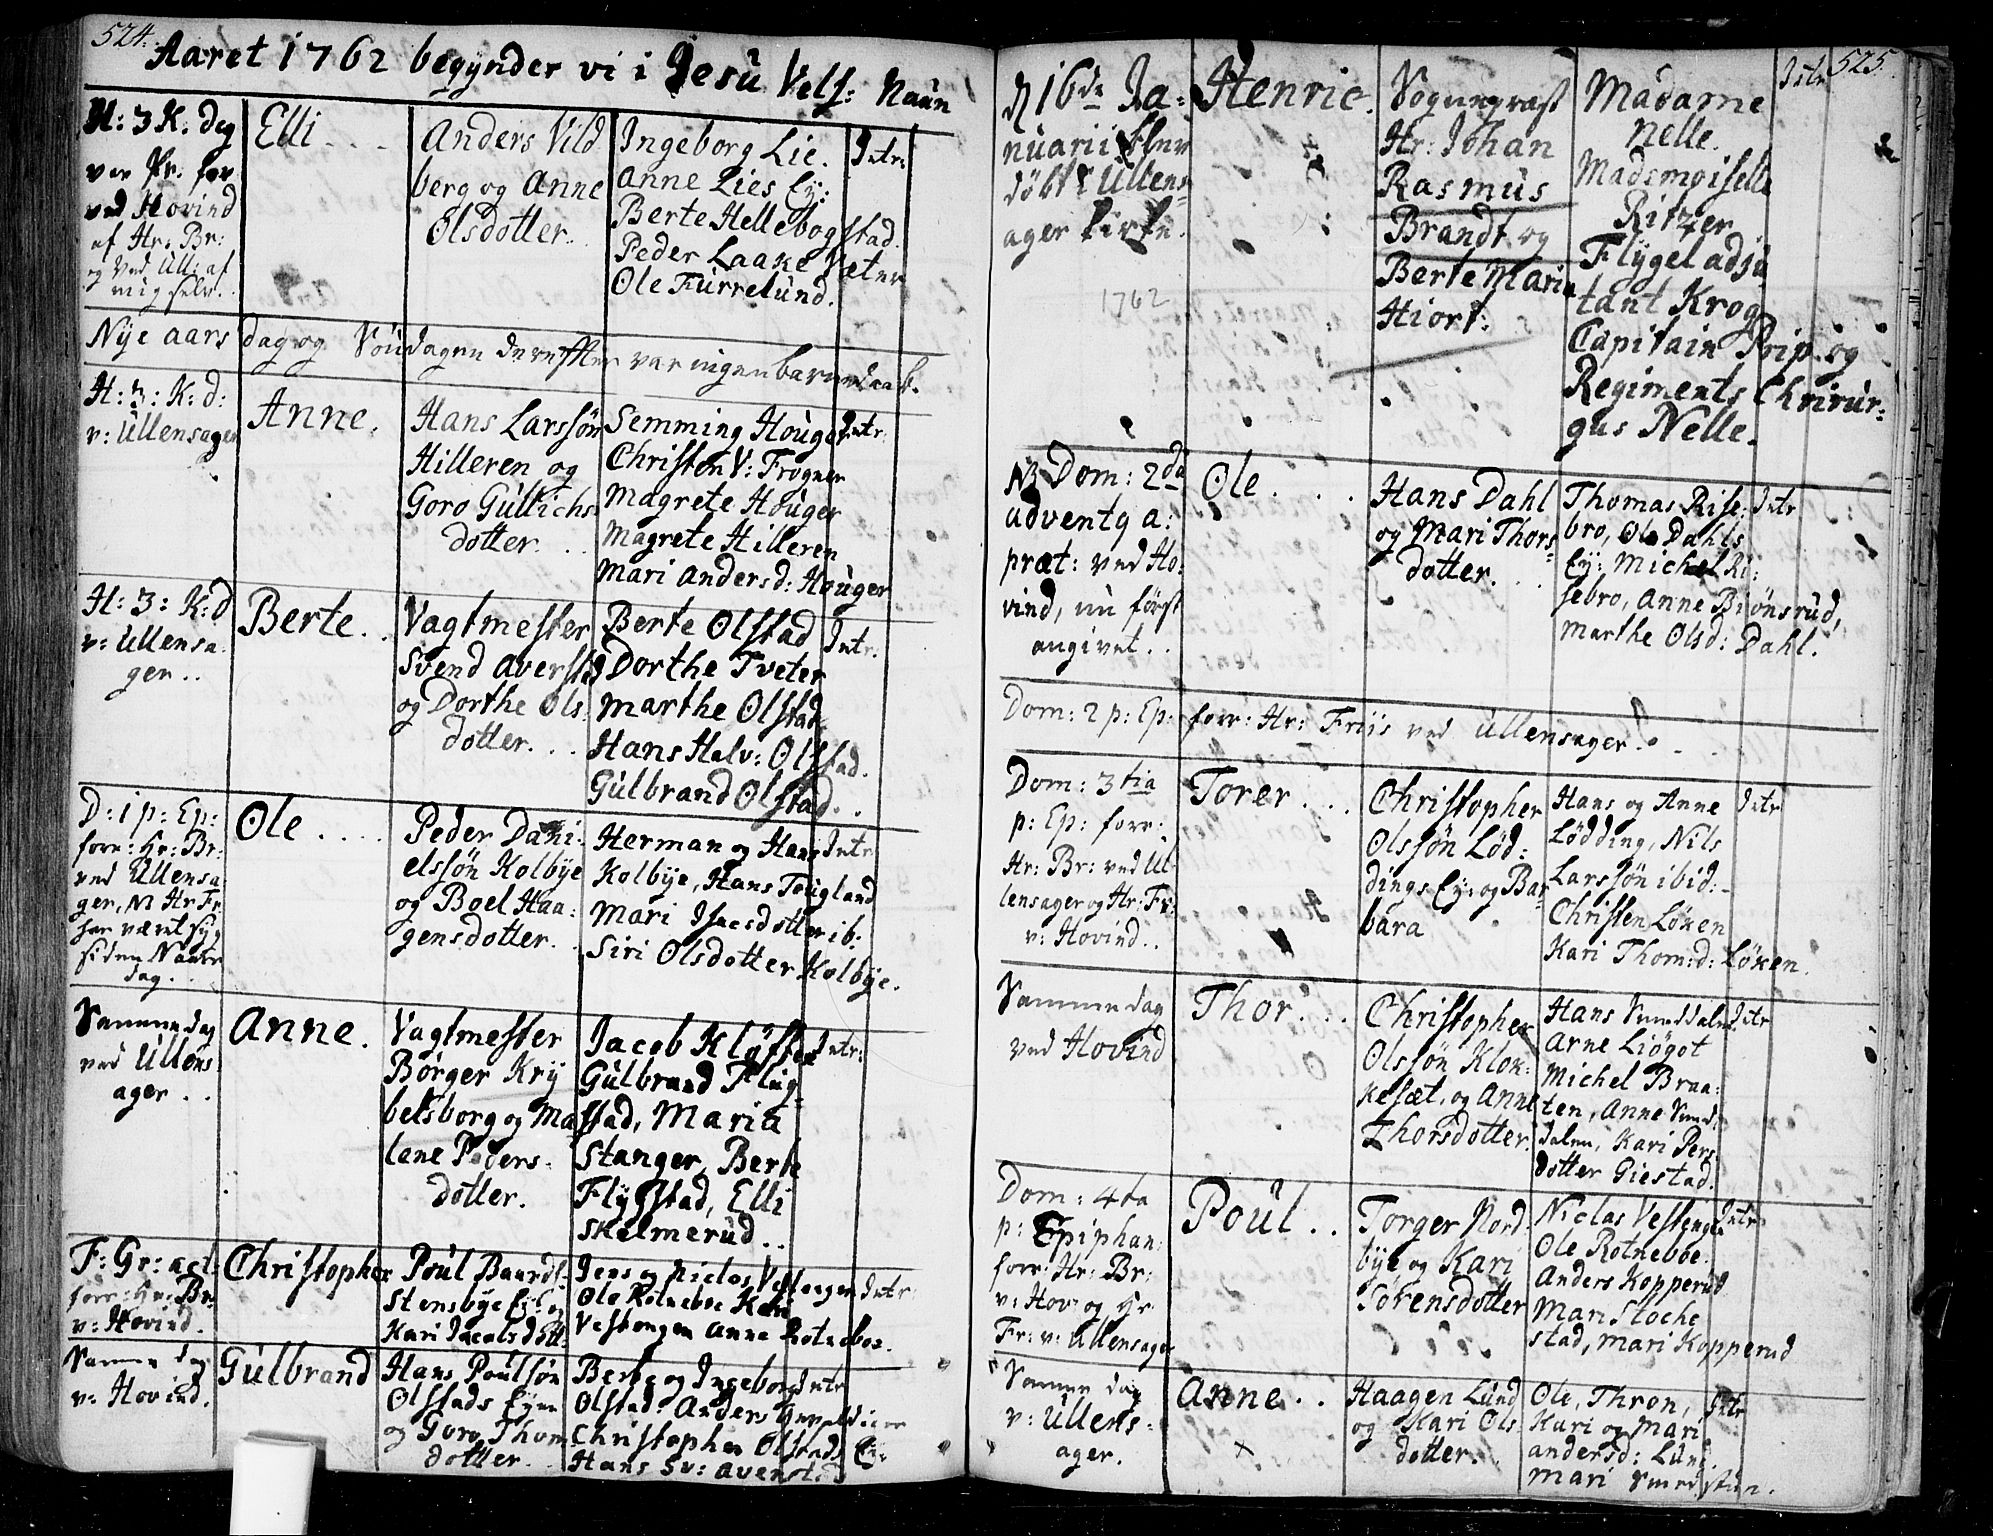 524.
Aaret 1762 begÿnder vi i Jesú Vels: Naún
H: 3 K. dag
var Pr. for
ved Hovind
af Hr: Br:
og ved Ull: af
mig selv.
Elli
Anders Vild
berg og Anne
Olsdotter.
Ingeborg Lie.
Anne Lies Ey:
Berte Hellebogstad.
Peder Laake Væter
Ole Fúrrelúnd.
Intr:
Nÿe aars dag og Søndagen derefter var ingen barnedaab.
H: 3: K: d:
v: Ullensager
Anne.
Hans Larssøn
Hilleren og
Goro Gúllichs
dotter.
Semming Hoúger
Christen V: Frogner
Magrete Hoúger
Magrete Hilleren
Mari Andersd: Hoúger
Intr:
H: 3: K: d
v: Ullensa
ger..
Berte..
Vagtmester
Svend Aversta
og Dorthe Ols
dotter.
Berte Olstad
Dorthe Tveter
Marthe Olstad
Hans Halv: Olstad.
Gúlbrand Olstad..
Intr.
D: 1 p: Ep:
forr: Hr: Br:
ved Ullensa
ger, NB Hr Fr:
har været syg
siden Naars
dag..
Ole....
Peder Dani
elssøn Kolbÿe
og Boel Haa:
gensdotter.
Herman og Hans
Kolbÿe, Hans Toúgland
Mari Isacsdotter ib:
Siri Olsdotter Kolbÿe.
Intr
Samme dag
ved Ullens
ager..
Anne.
Vagtmester
Børger Krÿ
belsborg og Ma
lane Peders
dotter.
Jacob Kløfter
Gúlbrand Flÿg
stad, Maria
Stanger, Berte
Flÿgstad, Elli
Skelmerúd..
Intr:
F: Gr: act:
forr: Hr: Br:
v: Hovind.
Christopher
Poúl Baards
Stensbÿe Ey: og
Kari Jacobsdott
Jens og Niclas Vestengen
Ole Rotneboe Kari
Vestengen Anne Rotneboe.
Intr:
Samme dag
v: Hovind.
Gúlbrand
Hans Poúlsøn
Olstads Eyer
og Goro Thom
dotter.
Berte og Ingeborg
Olstad. Anders
Christopher Olstads Ey:
Hans Sv: Avenstad
Intr
525.
d 16de Ja:
nuarii blev
døbt i Ullens
ager Kirke.
1762
Henric.
Sogunpræst
Hr: Johan
Rasmús
Brandt og
Berte Maria
Hiort:
Madame
Nelle.
Mademoiselle
Ritzer
Flÿgel adjú
tant Krog
Capitain Prip. og
Regiments Chrirúr
gus Nelle.
Intr
NB Dom: 2da
adventq a:
præt: ved Ho:
vind, nu først
angivet..
Ole...
Hans Dahl
og Mari Thors
dotter.
Thomas Rise
bro, Ole Dahls
Ey: Michel Ri:
sebro, Anne Biønsrúd,
Marthe Olsd: Dahl.
Intr
Dom: 2 p: Ep: forr: Hr: Friis ved Ullensager.
Dom: 3tia
p: Ep: forr:
Hr: Br: ved Ul
lensager og Hr: Fr:
v: Hovind..
Torer...
Christopher
Olssøn Lød:
dings Ey: og Bar
bara
Hans og Anne
Lødding, Nils
Larssøn ibid:
Christen Løken
Kari Thom:d: Løken.
Intr
Samme dag
ved Hovind
Thor...
Christopher
Olssøn Klok
kesæt, og Anne
Thorsdotter
Hans Smeddalen
Arne Liøgot
Michel Braa:
ten, Anne Smed
dalen, Kari Pers
dotter Giestad.
Intr
Dom: 4ta
p: Epiphan:
forr: Hr: Br:
v: Hov: og Hr
Fr: v: Ullensager
Poúl..
Torger Nord
bÿe og Kari
Tørensdotter
Niclas Vestengen
Ole Rotneboe.
Anders Kopperud
Mari Stoche
stad, Mari Kopperud
Intr
Samme dag
v: Ullens
ager.
Anne..
Haagen Lúnd
og Kari Ols
dotter.
Ole, Thron,
Kari og Mari
andersd: Lúnd.
Mari Smedstuen.
Intr